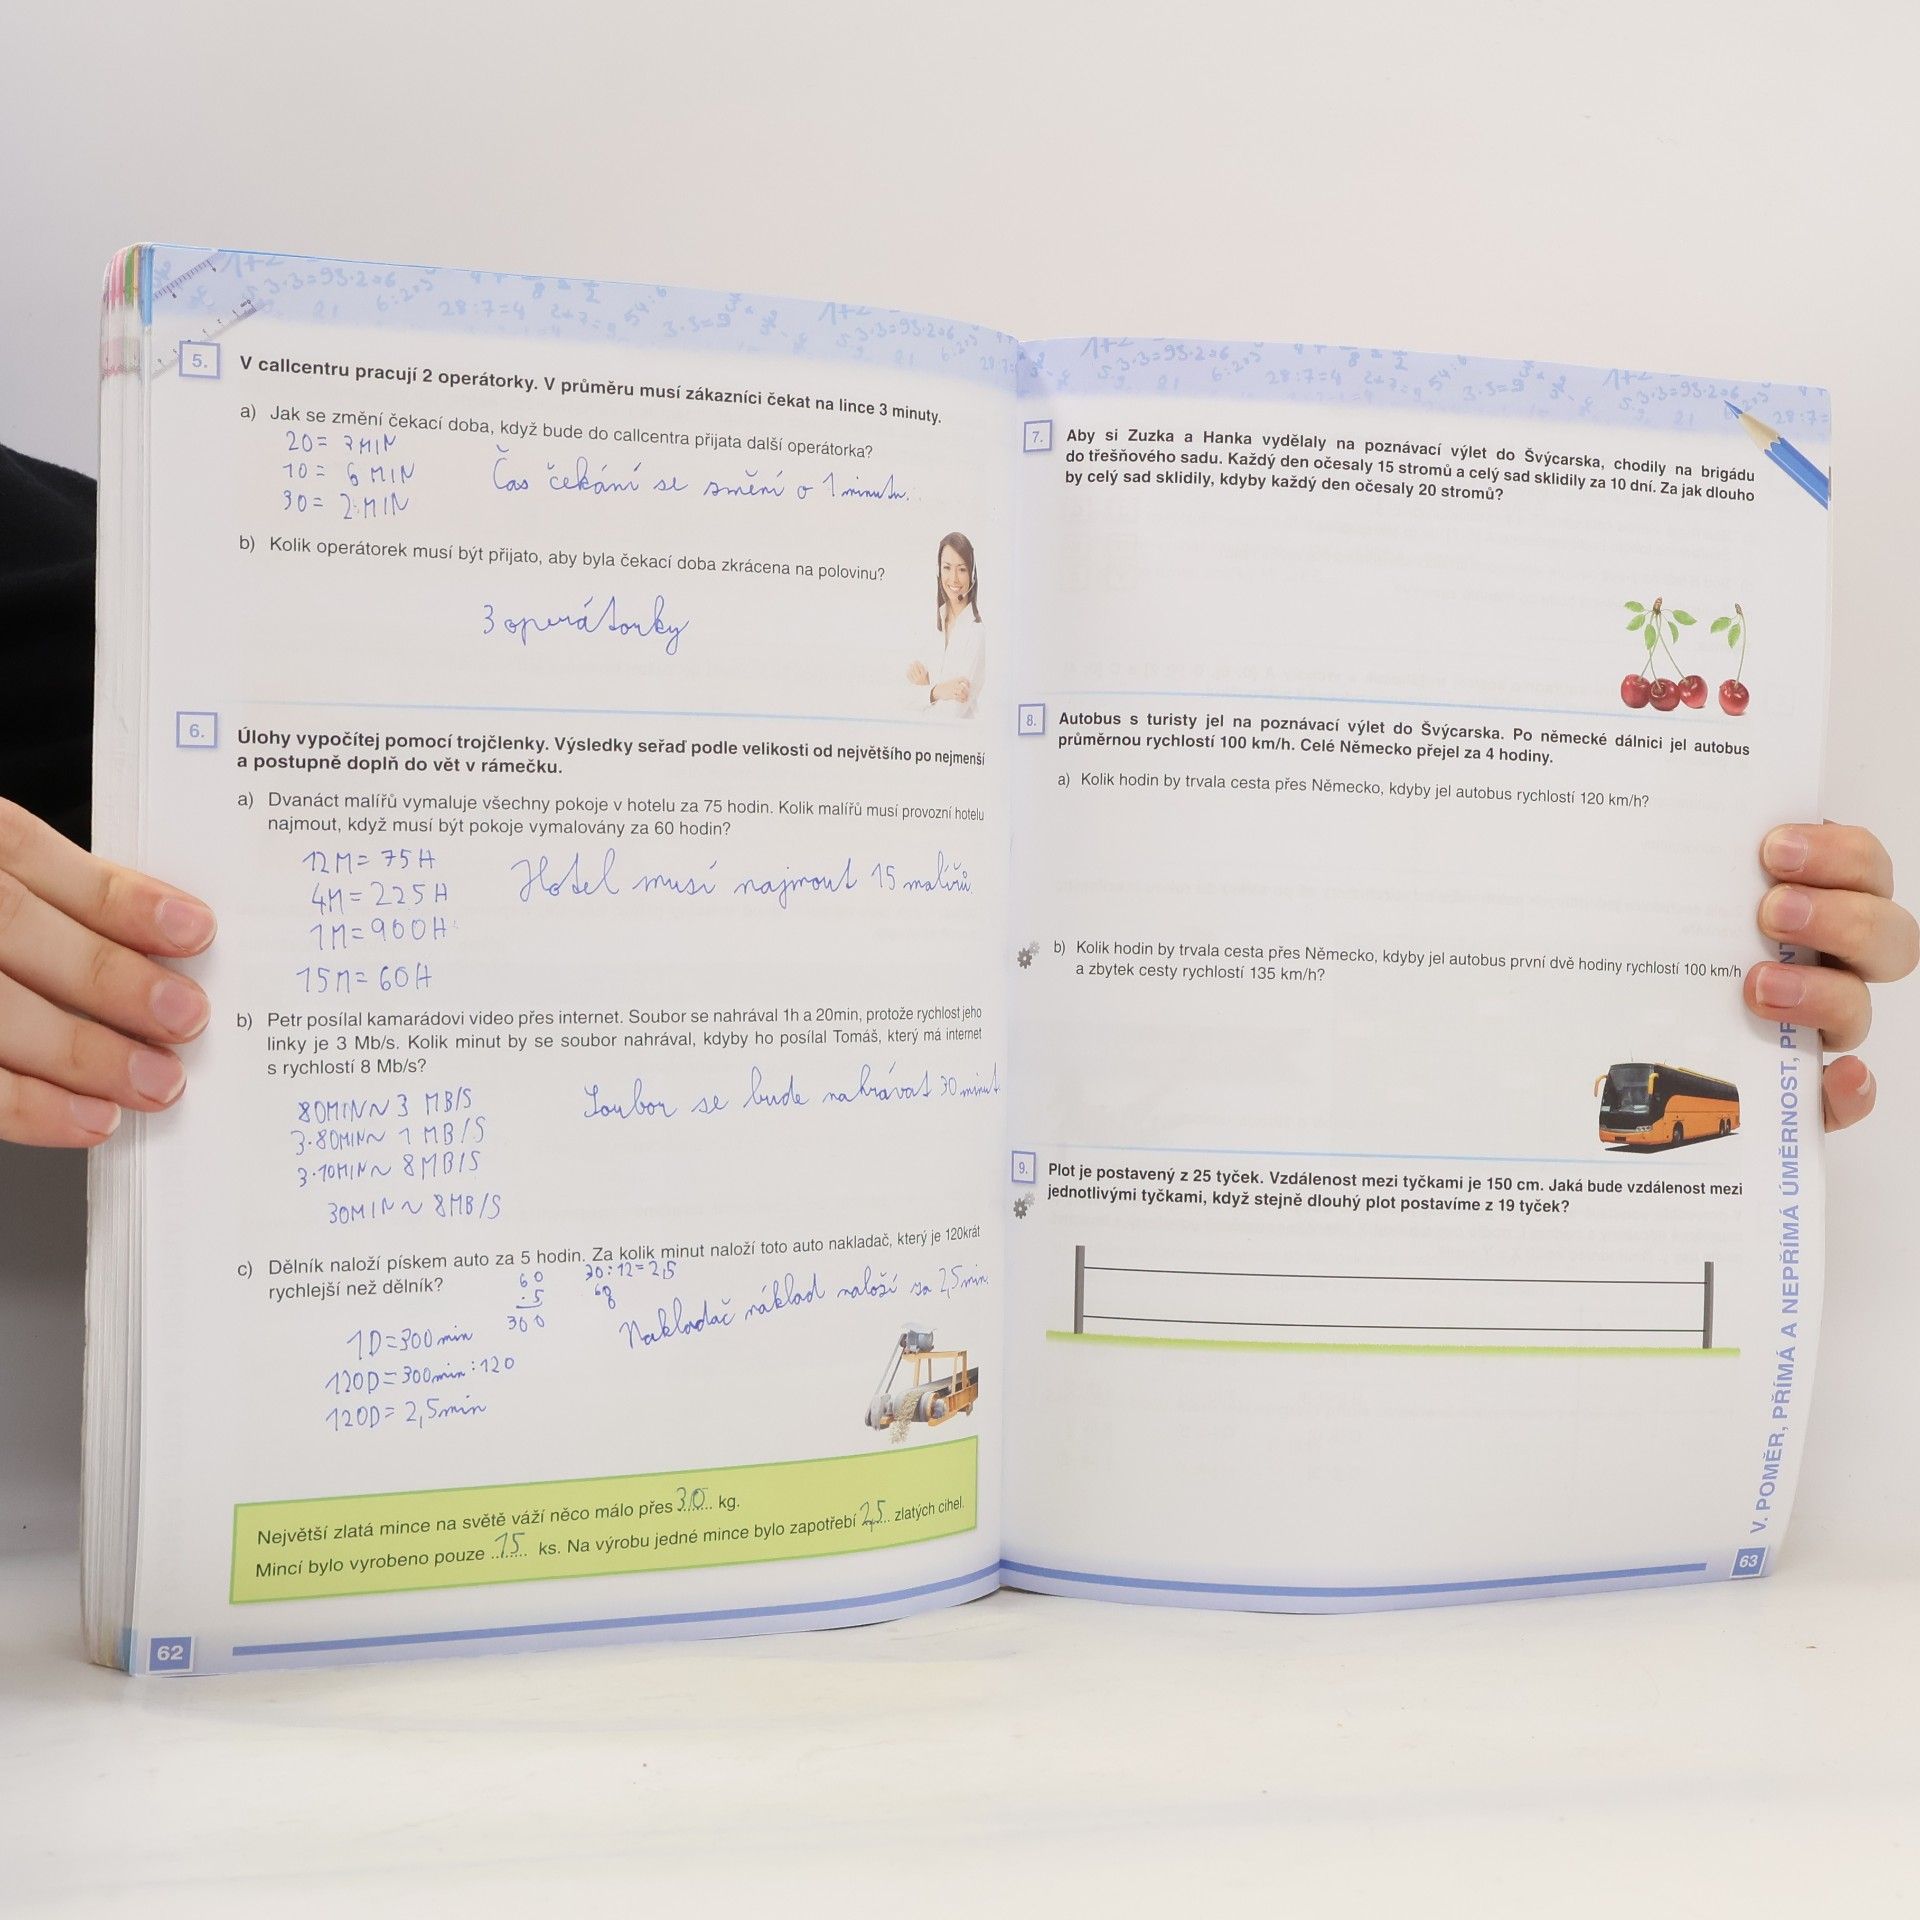 5.
V callcentru pracují 2 operátorky. V průměru musí zákazníci čekat na lince 3 minuty.
a) Jak se změní čekací doba, když bude do callcentra přijata další operátorka?
20= 3MIN
10= 6 MIN
30= 2 MIN
Čas čekání se změní o 1 minutu.
b) Kolik operátorek musí být přijato, aby byla čekací doba zkrácena na polovinu?
3 operátorky
6.
Úlohy vypočítej pomocí trojčlenky. Výsledky seřaď podle velikosti od největšího po nejmenší
a postupně doplň do vět v rámečku.
a) Dvanáct malířů vymaluje všechny pokoje v hotelu za 75 hodin. Kolik malířů musí provozní hotelu
najmout, když musí být pokoje vymalovány za 60 hodin?
12M= 75H
4M= 225H
1M= 900H
15M= 60H
Hotel musí najmout 15 malířů.
b) Petr posílal kamarádovi video přes internet. Soubor se nahrával 1h a 20min, protože rychlost jeho
linky je 3 Mb/s. Kolik minut by se soubor nahrával, kdyby ho posílal Tomáš, který má internet
s rychlostí 8 Mb/s?
80MIN~3 MB/S
3·80MIN~ 1 MB/S
3·10MIN~ 8MB/S
30MIN~ 8MB/S
Soubor se bude nahrávat 30 minut
c) Dělník naloží pískem auto za 5 hodin. Za kolik minut naloží toto auto nakladač, který je 120krát
rychlejší než dělník?
60
·5
300
30:12=2,5
60
Nakladač náklad naloží za 2,5min.
1D=300min
120D=300min:120
120D= 2,5min
Největší zlatá mince na světě váží něco málo přes 30 kg.
Mincí bylo vyrobeno pouze 15 ks. Na výrobu jedné mince bylo zapotřebí 2,5 zlatých cihel.
62
7.
Aby si Zuzka a Hanka vydělaly na poznávací výlet do Švýcarska, chodily na brigádu
do třešňového sadu. Každý den očesaly 15 stromů a celý sad sklidily za 10 dní. Za jak dlouho
by celý sad sklidily, kdyby každý den očesaly 20 stromů?
8.
Autobus s turisty jel na poznávací výlet do Švýcarska. Po německé dálnici jel autobus
průměrnou rychlostí 100 km/h. Celé Německo přejel za 4 hodiny.
a) Kolik hodin by trvala cesta přes Německo, kdyby jel autobus rychlostí 120 km/h?
b) Kolik hodin by trvala cesta přes Německo, kdyby jel autobus první dvě hodiny rychlostí 100 km/h
a zbytek cesty rychlostí 135 km/h?
9.
Plot je postavený z 25 tyček. Vzdálenost mezi tyčkami je 150 cm. Jaká bude vzdálenost mezi
jednotlivými tyčkami, když stejně dlouhý plot postavíme z 19 tyček?
V. POMĚR, PŘÍMÁ A NEPŘÍMÁ ÚMĚRNOST,
63